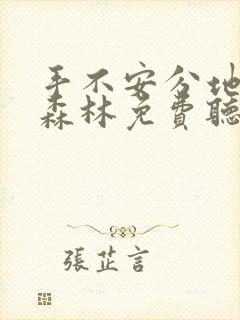 手不安分地
森林免费聽
張芷言